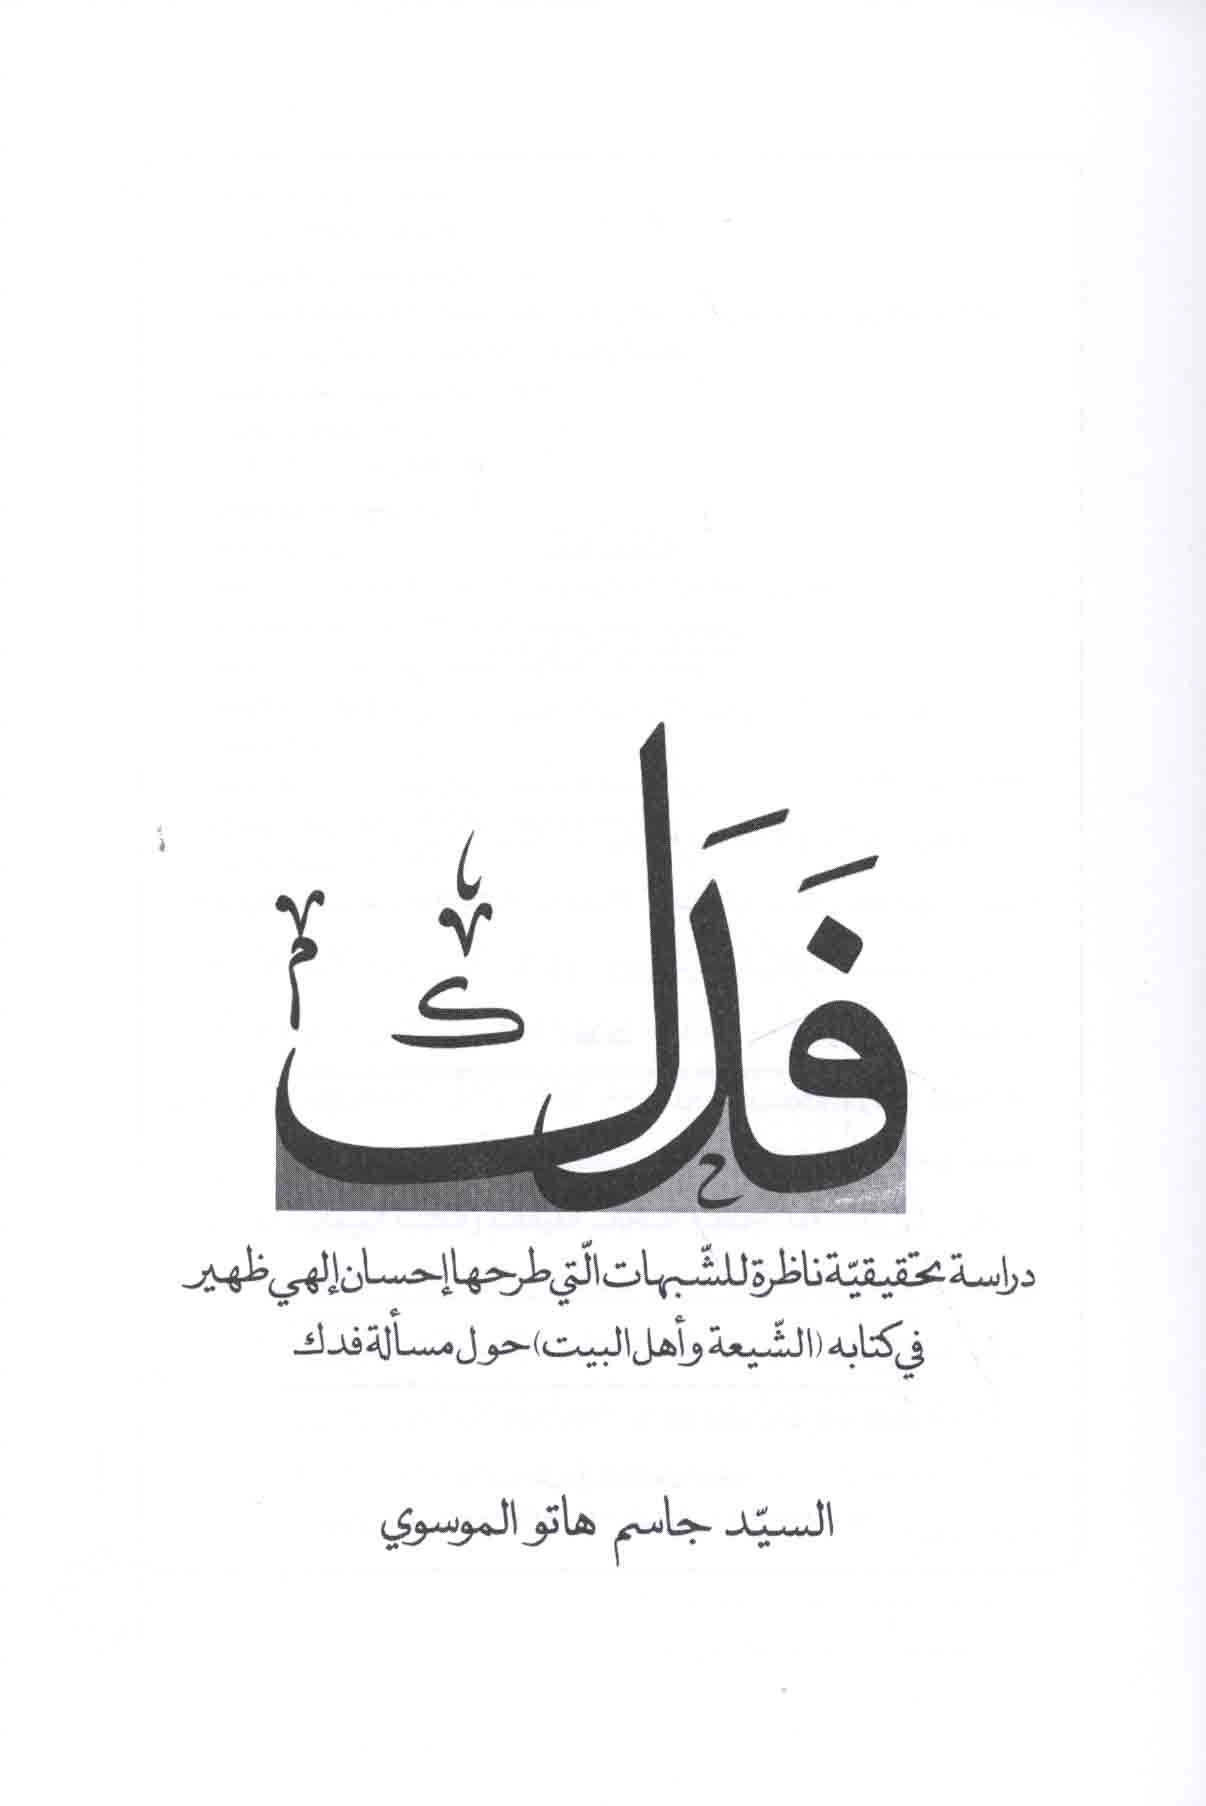 فَدَك
دراسة تحقيقيّة ناظرة للشّبهات الّتي طرحها إحسان إلهي ظهير
في كتابه (الشّيعة وأهل البيت) حول مسألة فدك
السيّد جاسم هاتو الموسوي